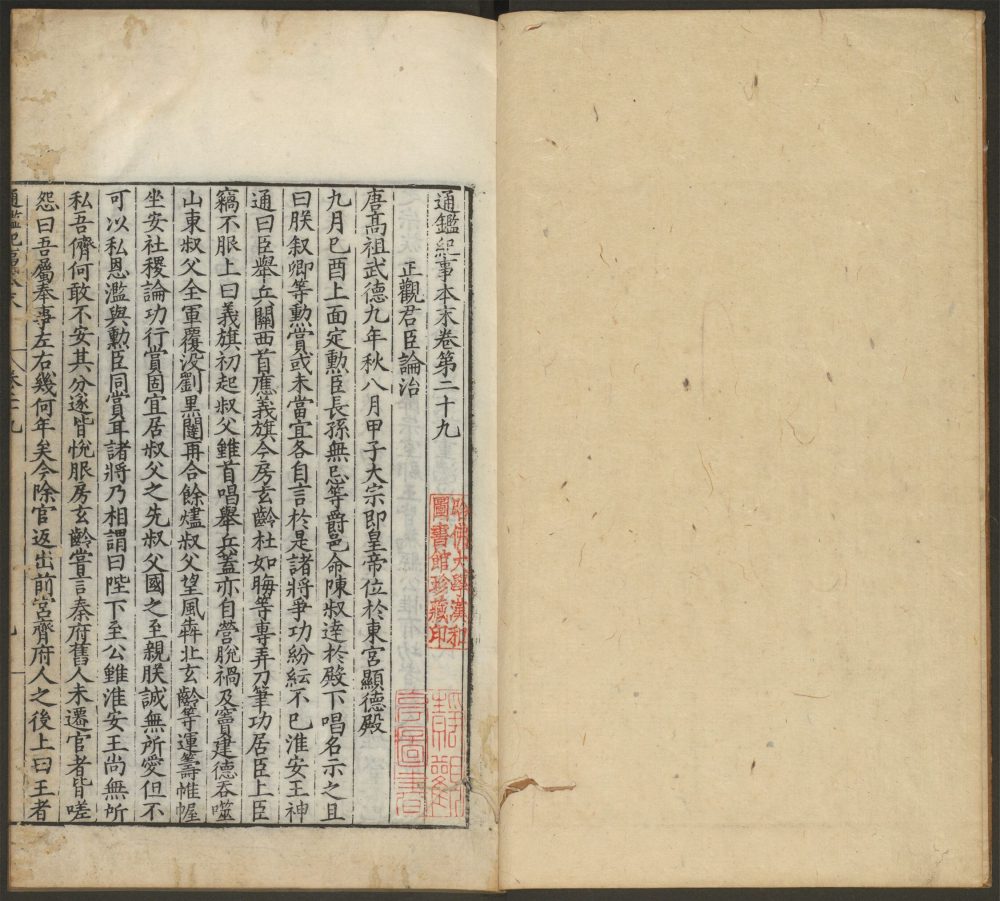 通鑑紀事本末卷第二十九
正觀君臣論治
唐高祖武德九年秋八月甲子大宗即皇帝位於東宮顯德殿
九月巳酉上面定勳臣長孫無忌等爵邑命陳叔達於殿下唱名示之且
曰朕叙卿等勳賞或未當宜各自言於是諸將爭功紛紜不已淮安王神
通曰臣舉兵關西首應義旗今房玄齡杜如晦等專弄刀筆功居臣上臣
竊不服上曰義旗初起叔父雖首唱舉兵蓋亦自營脫禍及竇建德吞噬
山東叔父全軍覆沒劉黑闥再合餘燼叔父望風犇北玄齡等運籌帷幄
坐安社稷論功行賞固宜居叔父之先叔父國之至親朕誠無所愛但不
可以私恩濫與勳臣同賞耳諸將乃相謂曰陛下至公雖淮安王尚無所
私吾儕何敢不安其分遂皆悅服房玄齡嘗言秦府舊人未遷官者皆嗟
怨曰吾屬奉事左右幾何年矣今除官返出前宮齊府人之後上曰王者
哈佛大學漢和
圖書館珍藏印